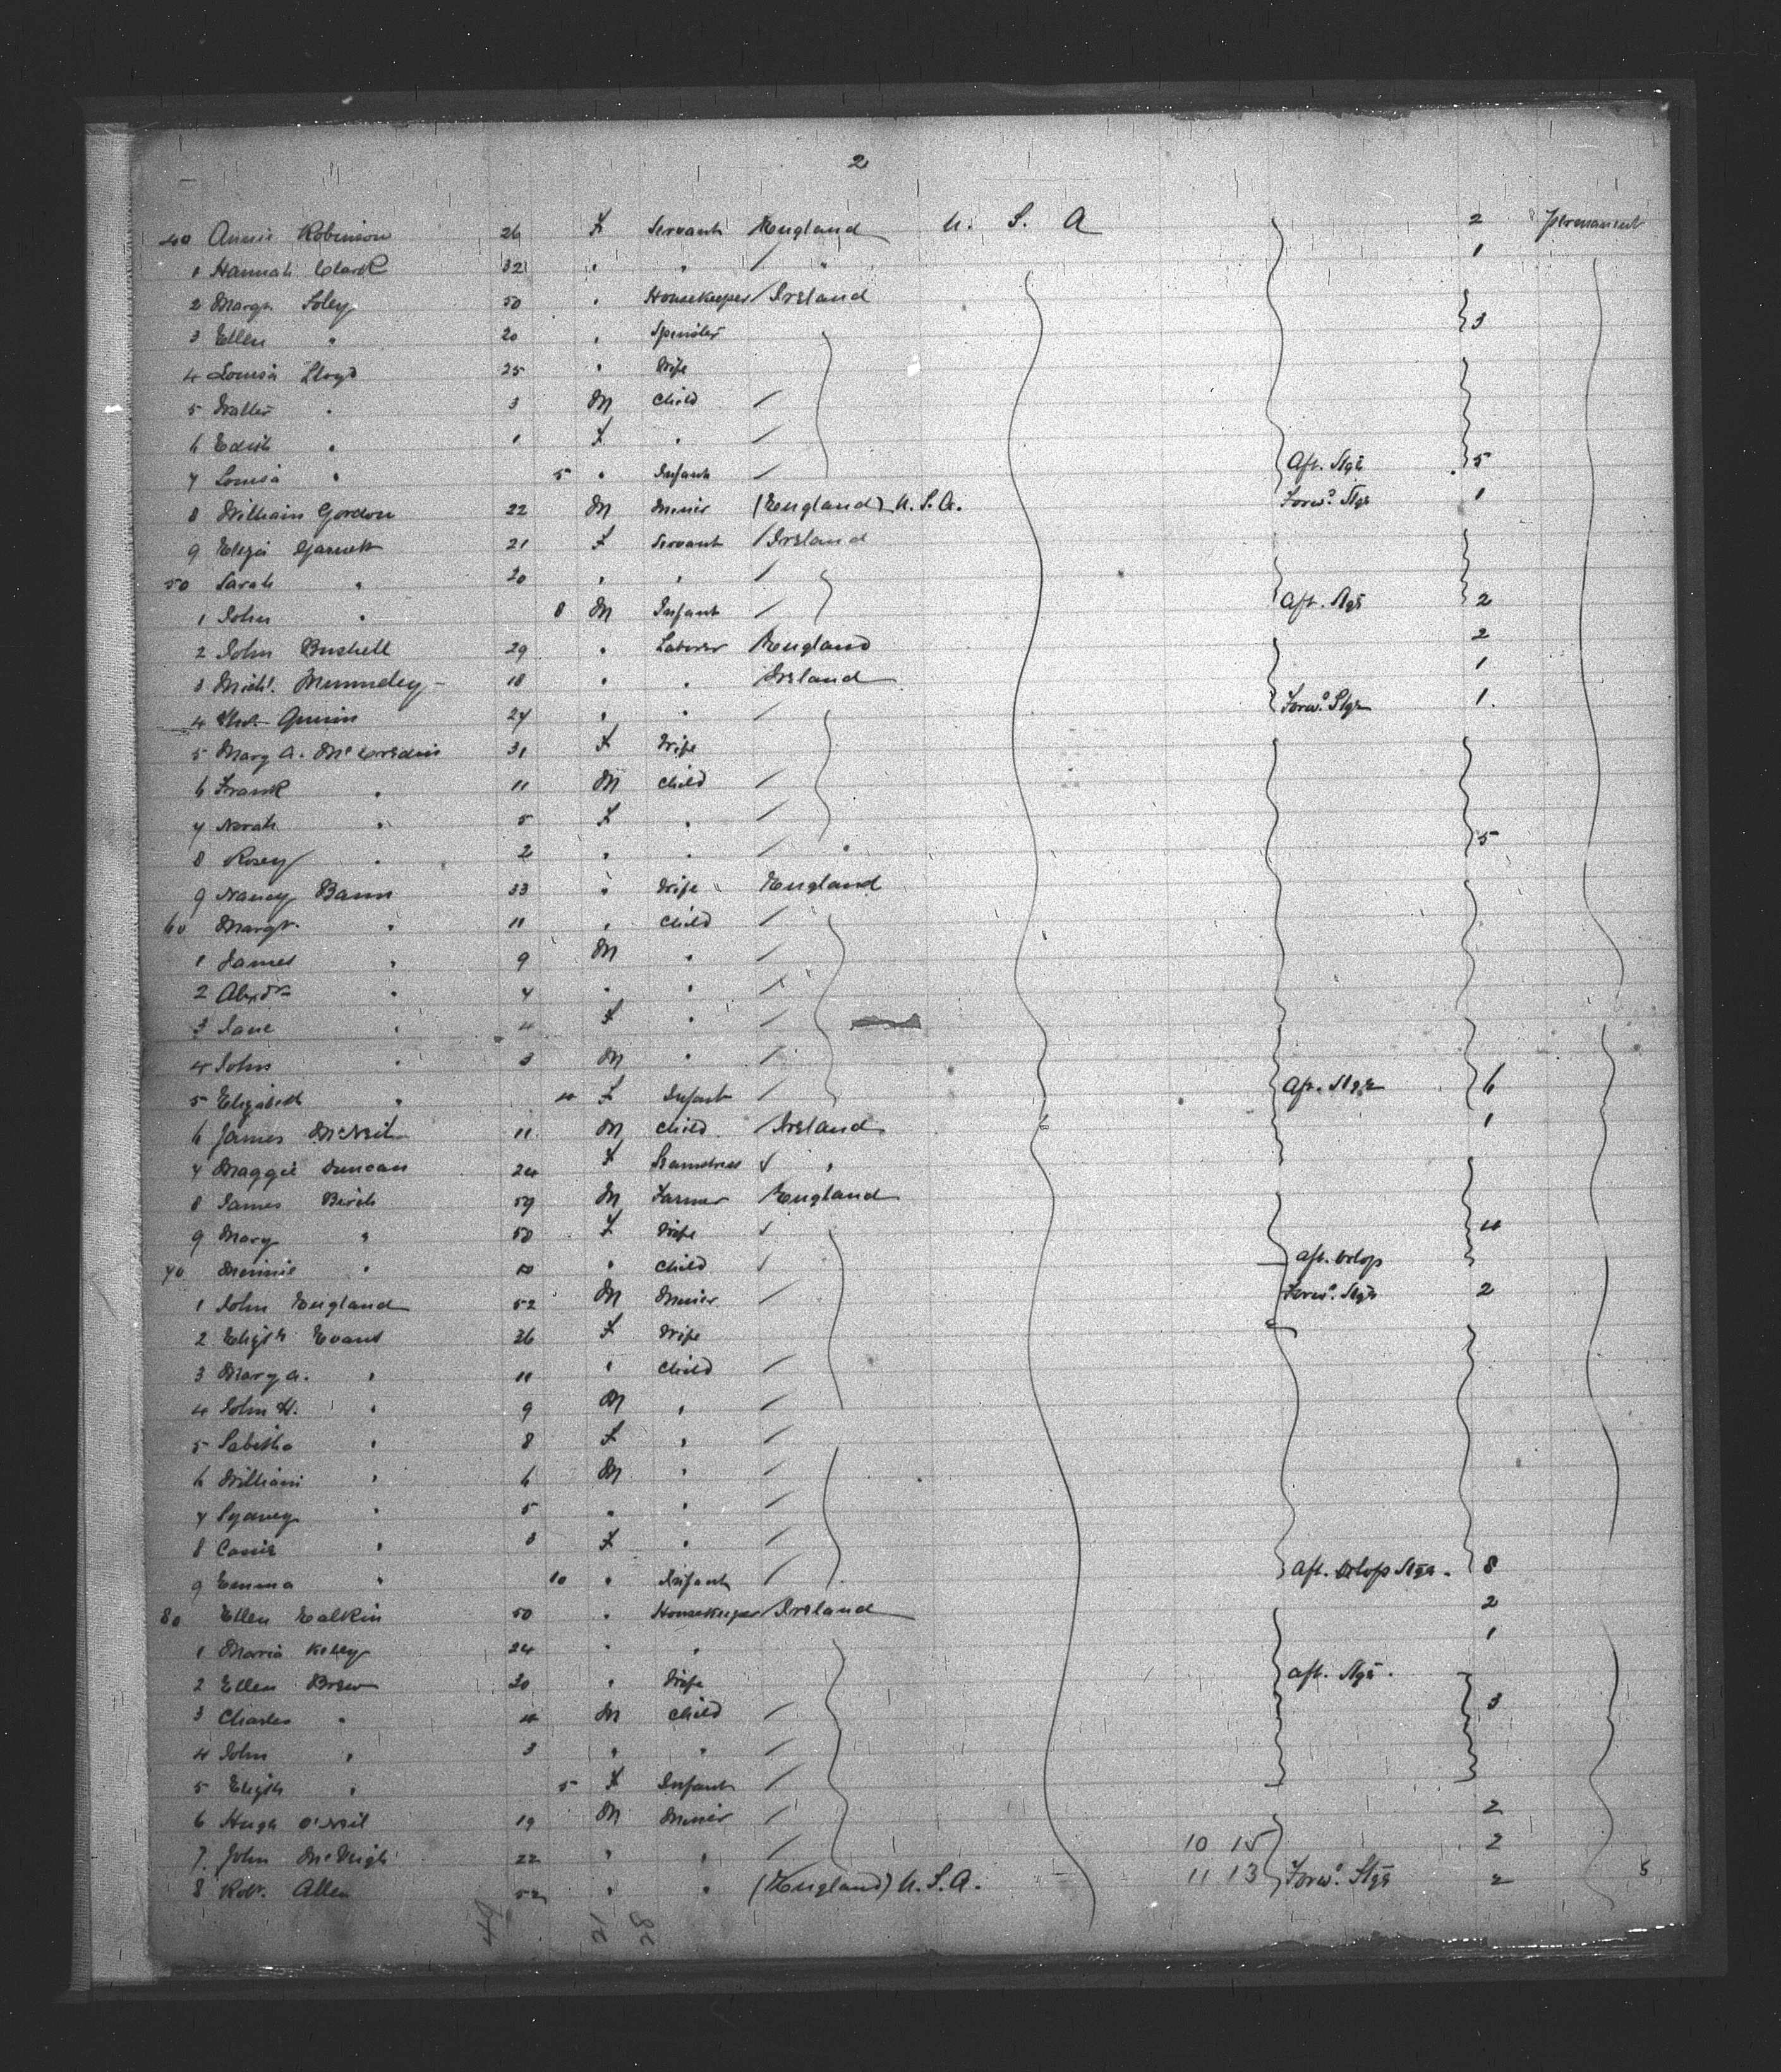 2
40 Annie Robinson 26 F Servant England U. S. A 2 Permanent
1 Hannah Clark 32 " " / " 1
2 Margt. Foley 50 " Housekeeper / Ireland
3 Ellen " 20 " Spinster 3
4 Louisa Lloyd 25 " Wife
5 Walter " 3 M Child /
6 Edith " 1 F " /
7 Louisa " 5 " Infant / Aft. Stge 5
8 William Gordon 22 M Miner (England) U. S. A. Forwd. Stge 1
9 Eliza Garnett 21 F Servant / Ireland
50 Sarah " 20 " " /
1 John " 8 M Infant / Aft. Stge 2
2 John Bushell 29 " Laborer England 2
3 Michl. 18 " " Ireland 1
4 Quinn 27 " " / Forwd. Stge 1.
5 Mary A. 31 F Wife
6 Frank " 11 M Child /
7 Norah " 5 F " /
8 Rosey " 2 " " / " 5
9 Nancy Bann 33 " Wife England
60 Margt. " 11 " Child /
1 James " 9 M " /
2 Alexdr " 7 " " /
3 Jane " 4 F " /
4 John " 3 M " /
5 Elizabeth " F Infant / Aft. Stge 6
6 James McNeil 11 M Child / Ireland 1
7 Maggie Duncan 24 F Seamstress √ "
8 James Birch 59 M Farmer England
9 Mary " 58 F Wife √ 4
70 Minnie " 10 " Child √ Aft. Orlop
1 John England 52 M Miner / Forwd. Stge 2
2 Elizth Evans 36 F Wife
3 Mary A. " 11 " Child /
4 John H. " 9 M " /
5 Tabitha " 8 F " /
6 William " 6 M " /
7 Sydney " 5 " " /
8 " 3 F " /
9 Emma " 10 " Infant / Aft. Orlop Stge. 8
80 Ellen Calkin 50 " Housekeeper / Ireland 2
1 Maria Kelley 24 " " 1
2 Ellen Brew 30 " Wife Aft. Stge.
3 Charles " 4 M Child / 3
4 John " 3 " " /
5 Elizth " 5 F Infant /
6 Hugh O'Neil 19 M Miner / 2
7. John McVeigh 22 " " / 10 15 2
8 Robt. Allen 52 " " (England) U. S. A. 11 13 Forwd. Stge 2 5
49 21 28